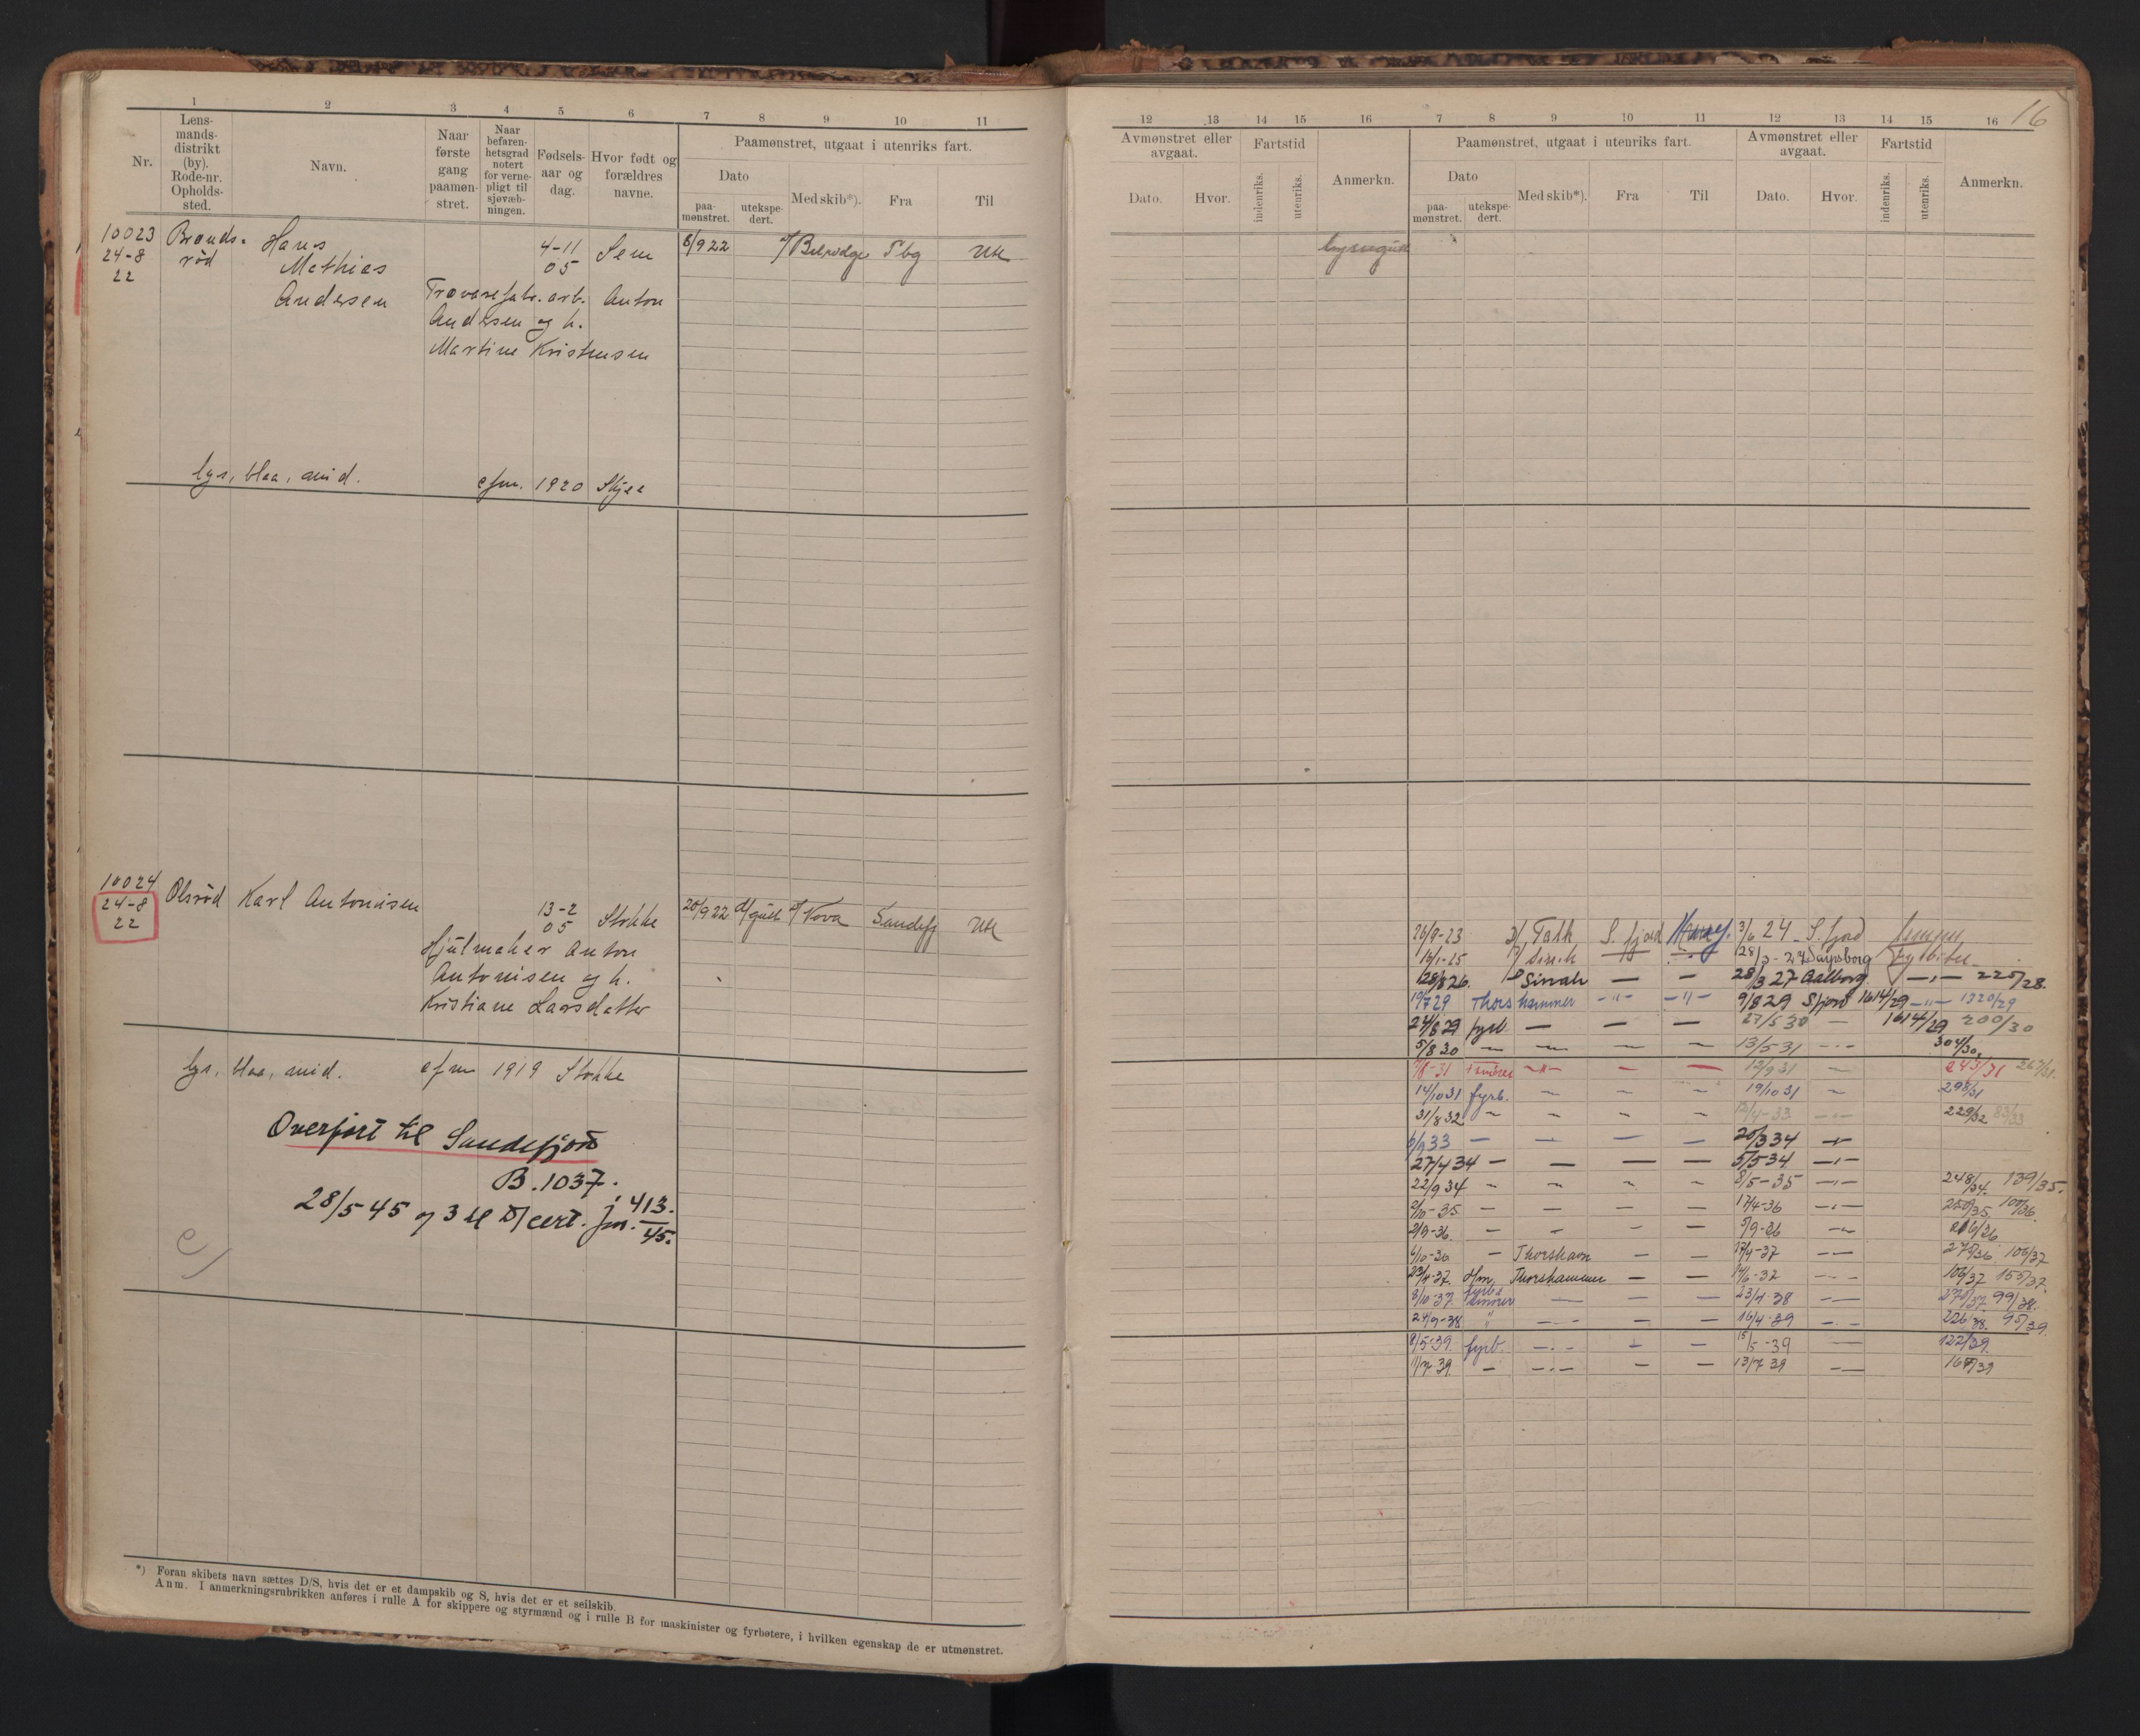 16
1 2 3 4 5 6 7 8 9 10 11
Nr.
Lens-
mands-
distrikt
(by).
Rode-nr.
Opholds-
sted.
Navn.
Naar
første
gang
paamøn-
stret.
Naar
befaren-
hetsgrad
notert
for verne-
pligt til
sjøvæb-
ningen.
Fødsels-
aar og
dag.
Hvor født og
forældres
navne.
Paamønstret, utgaat i utenriks fart.
Dato
paa-
mønstret.
utekspe-
dert.
Med skib*).
Fra
Til
12 13 14 15 16 7 8 9 10 11 12 13 14 15 16
Avmønstret eller
avgaat.
Dato.
Hvor.
Fartstid
indenriks.
utenriks.
Anmerkn.
Paamønstret, utgaat i utenriks fart.
Dato
paa-
mønstret.
utekspe-
dert.
Med skib*).
Fra
Til
Avmønstret eller
avgaat.
Dato.
Hvor.
Fartstid
indenriks.
utenriks.
Anmerkn.
10023
24-8
22
Hans
Mathias
Andersen
4-11
05
Sem
6/9 22
Tbg
Utl
Trævarefabr. arb. Anton
Andersen og h.
Martine Kristensen
lys, blaa, mid. efm. 1920 Skjee
10024
24-8
22
Olsrød Karl Antonisen
13-2
05
Stokke
20/9 22
Nova Sandefj Utl
Hjulmaker Anton
Antonisen og h.
Kristiane Larsdatter
lys, blaa, mid. efm 1919 Stokke
Overført til Sandefjord
B. 1037.
28/5 45 og 3 til D/cert. jnr. 413.
45.
26/9-23 S. fjord 3/6 24 S. fjord
28/3-27 Sarpsborg
28/8 26. Sirrah — — 28/3 27 Aalborg — " — 225/28.
19/7 29 Thorshammer — " — — " — 9/8 29 Sfjord 1614/29 — " — 1320/29
24/8 29 fyrb — — — 27/5 30 — 1614/29 200/30
5/8 30 — — — — 13/5 31 — " — 304/30.
— — 12/9 31 — 243/31
14/10 31 fyrb. — — — 19/10 31 — 298/31
31/8 32 — — — — — 229/32 83/33
6/9 33 — — — — 20/3 34 — " —
27/4 34 — — — — 5/5 34 — " —
22/9 34 — — — — 8/5-35 — " — 248/34. 139/35.
2/10-35 — — — — 17/4-36 — " — 250/35. 100/36.
2/9-36. — — — — 5/9-36 — 216/36
6/10-36 — Thorshavn — — 17/4-37 — 106/37
23/4-37. Hm. Thorshammer — — — 106/37 155/37.
8/10-37. fyrb &
smører — — — 23/4-38 — 99/38.
24/9-38 " — — — 16/4-39 — 226/38. 95/39.
8/5-39. fyrb. — — — 15/5-39 — 122/39.
11/7 39. — — — — 13/7 39 — 167/39
*) Foran skibets navn sættes D/S, hvis det er et dampskib og S, hvis det er et seilskib.
Anm. I anmerkningsrubrikken anføres i rulle A for skippere og styrmænd og i rulle B for maskinister og fyrbøtere, i hvilken egenskap de er utmønstret.